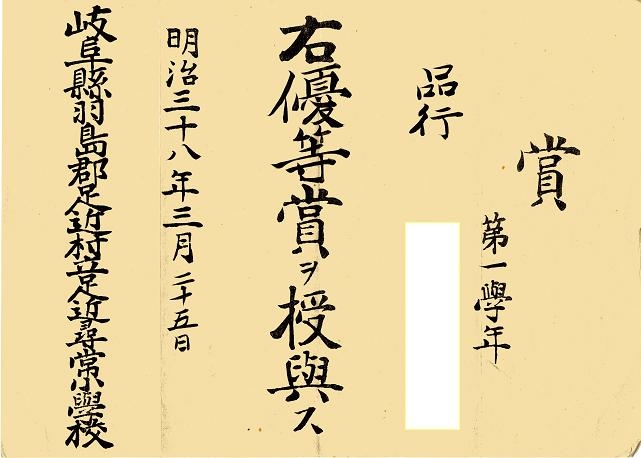 賞
第一學年
品行
右優等賞ヲ授與ス
明治三十八年三月二十五日
岐阜縣羽島郡足近村立足近尋常小學校